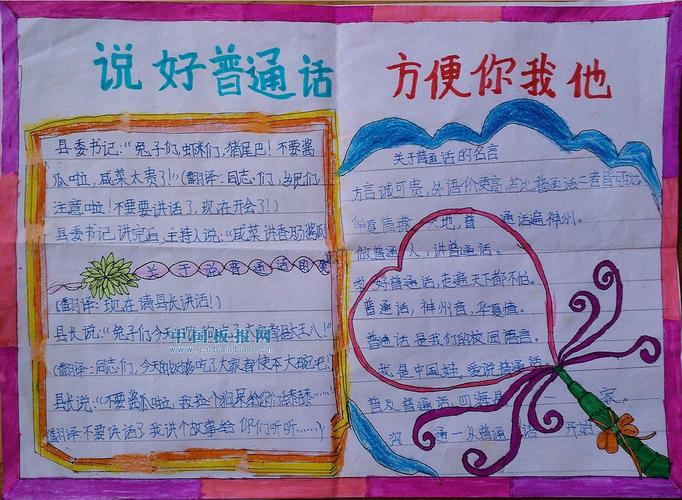 说好普通话 方便你我他
县委书记:“兔子们,虾咪们,猪尾巴!不要酱
瓜啦,咸菜太贵了!”(翻译:同志们,乡民们
注意啦!不要讲话了,现在开会了!)
县委书记讲完后,主持人说:“咸菜请香肠酱瓜
关于说普通话的
(翻译:现在请县长讲话!)
县长说:“兔子们今天
(翻译:同志们,今天的饭够吃了大家都使大碗吧!
县长说:“不要酱瓜啦,我捡个狗屎给你们舔舔……
(翻译:不要讲话了我讲个故事给你们听听……)
中国板报网
www.cnbanbao.cn
关于普通话的名言
方言诚可贵,外语价更高,若比普通话二者皆可抛
华夏情 地,普 通话遍神州。
做普 人,讲普通话。
好普通话,走遍天下都不怕。
普通话,神州音,华夏情。
普通话是我们的校园语言。
我是中国娃,爱说普通话
普及普通话,四海是 一 家。
沟通 一从普通话 开始